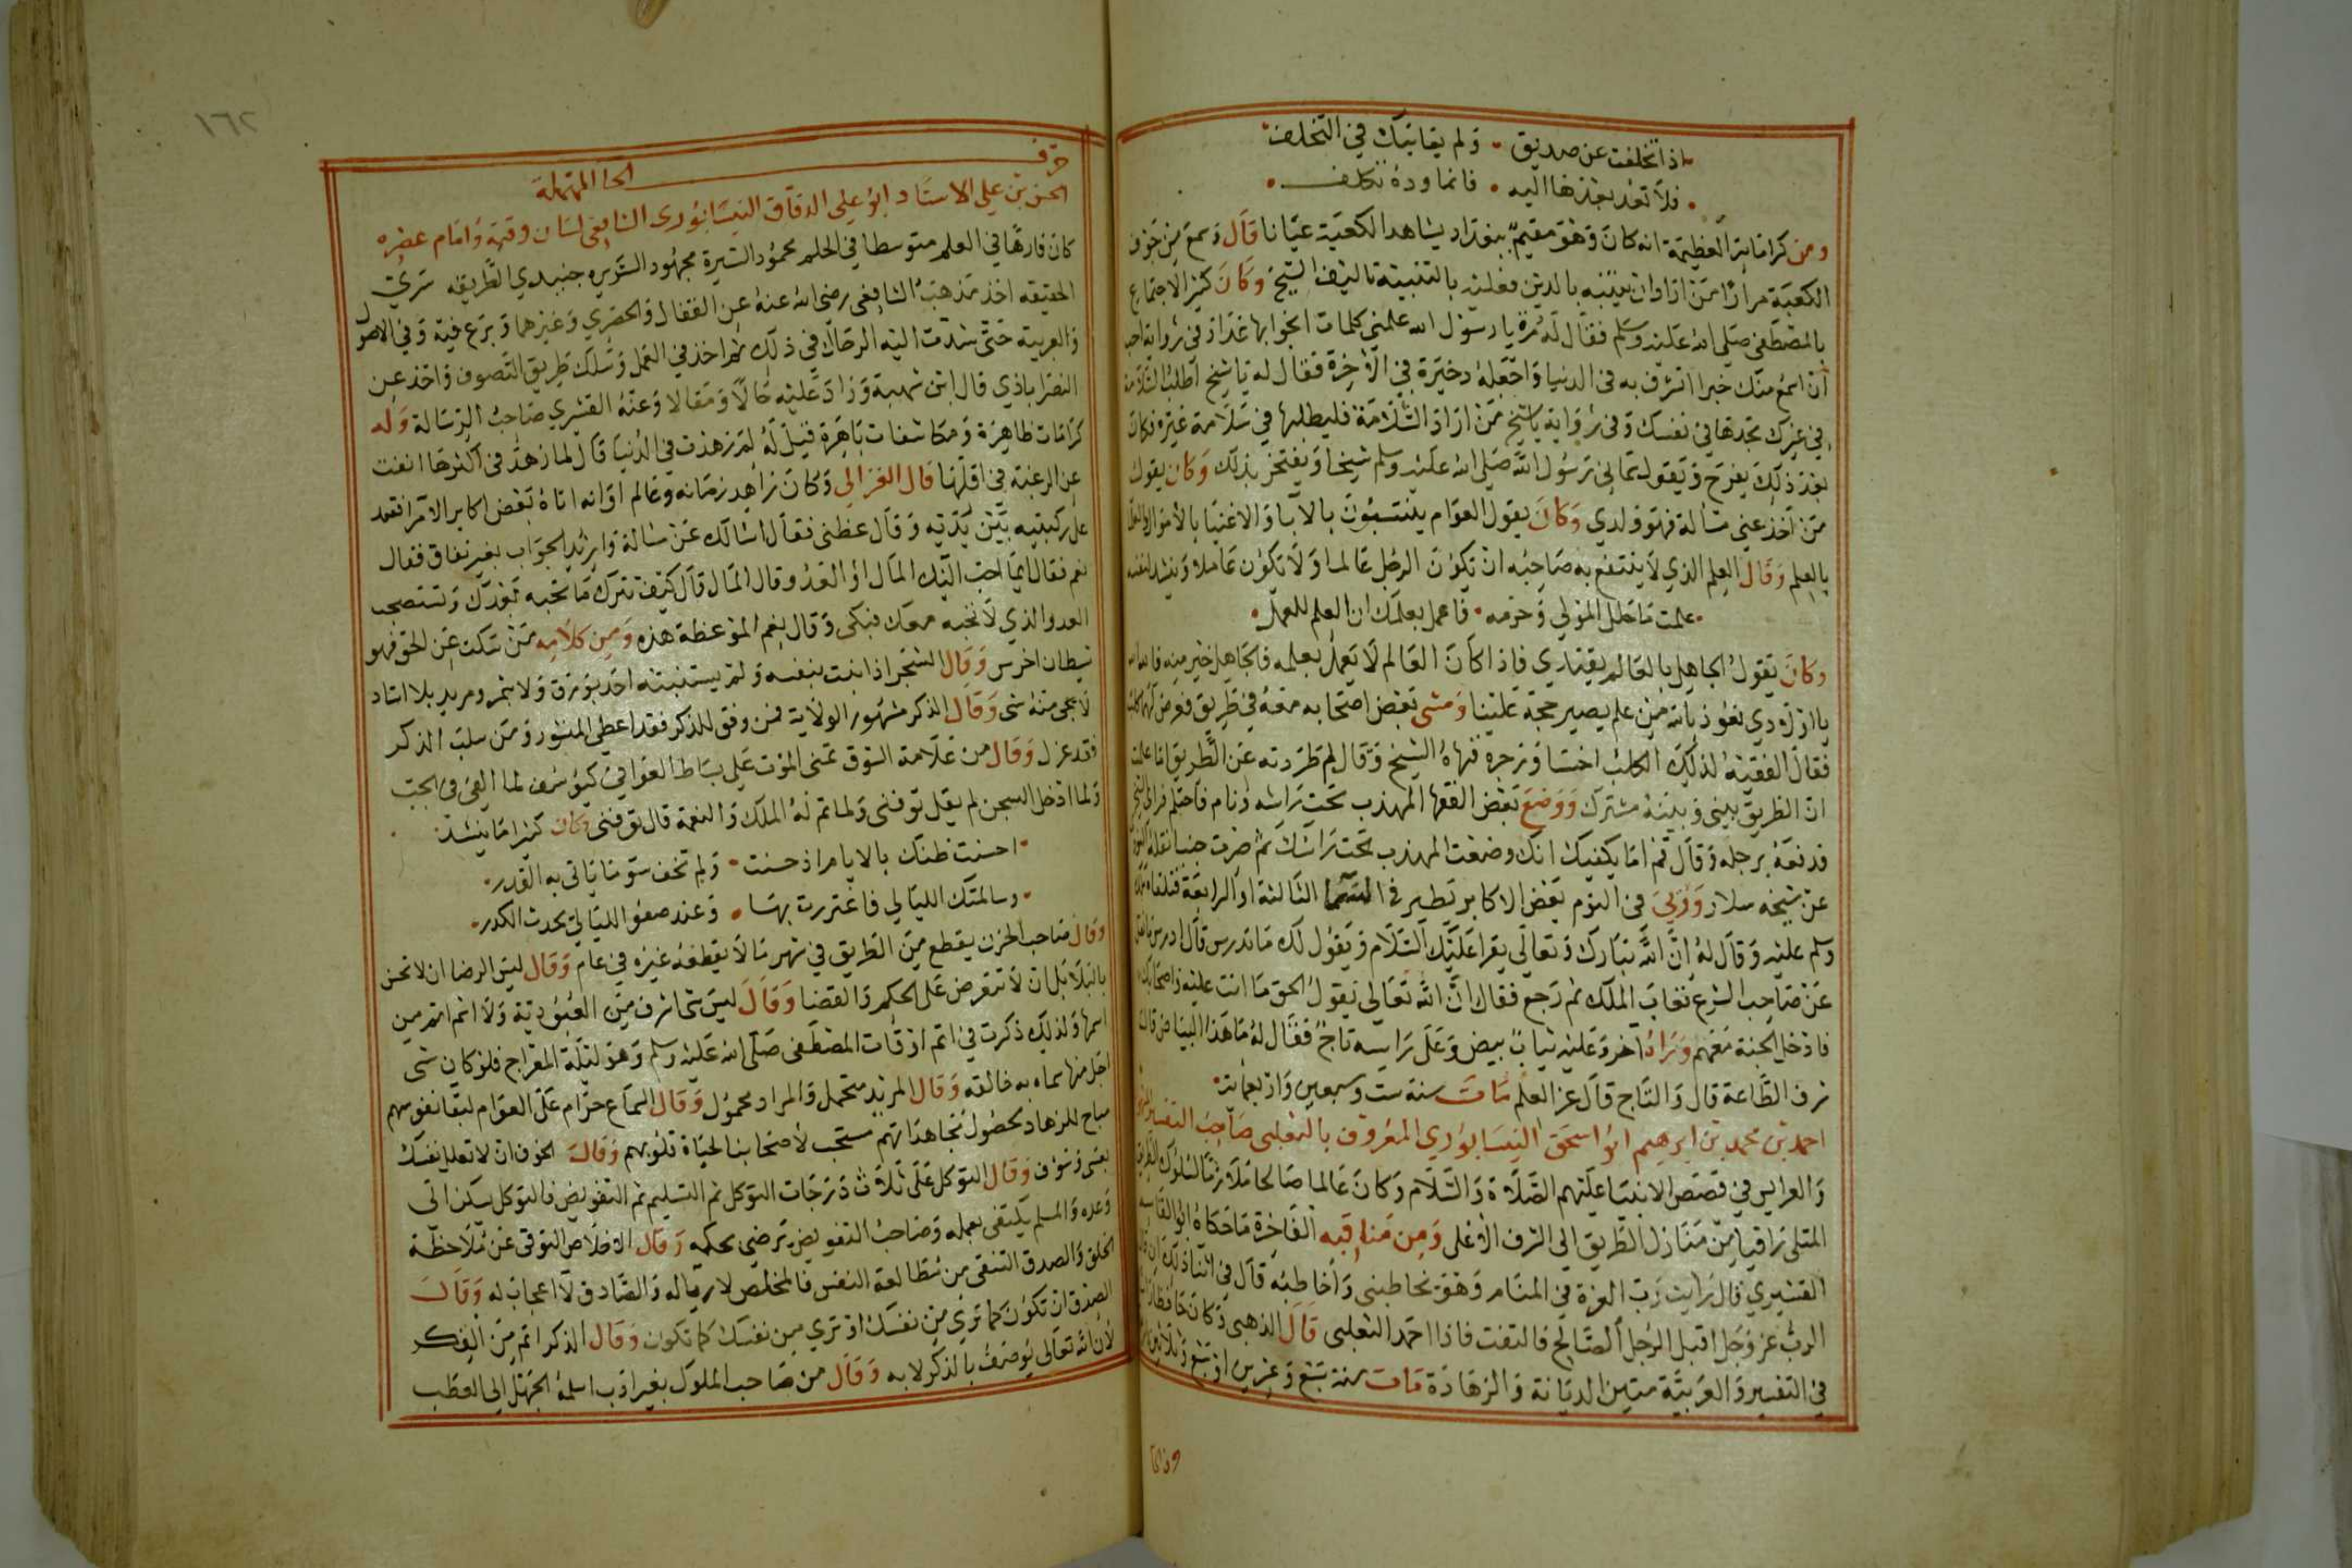 اذا تخلفت عن صديق • ولم يعاتبك في التخلف
فلا تعد بعدها اليه • فانما وده تكلف
ومن كراماته العظيمة انه كان وهو مقيم ببغداد يشاهد الكعبة عيانا قال وسمع من جوف
الكعبة مرارا من اراد ان يتنبه بالدين فعليه بالتنبيه تاليف الشيخ وكان كثير الاجتماع
بالمصطفى صلى الله عليه وسلم فقال له مرة يا رسول الله علمني كلمات انجو بها غدا وفي رواية احب
ان اسمع منك خبرا اتشرف به في الدنيا واجعله دخيرة في الآخرة فقال له يا شيخ اطلب السلامة
في غيرك تجدها في نفسك وفي رواية يا شيخ من اراد السلامة فليطلبها في سلامة غيره فكان
بعد ذلك يفرح ويقول سماني رسول الله صلى الله عليه وسلم شيخا ويفتخر بذلك وكان يقول
من أخذ عني مسألة فهو ولدي وكان يقول العوام ينتسبون بالآباء والاغنيا بالاموال والعلما
بالعلم وقال العلم الذي لا ينتفع به صاحبه ان يكون الرجل عالما ولا يكون عاملا وينشد لنفسه
علمت ما حلل المولى وحرمه • فاعمل بعلمك ان العلم للعمل
وكان يقول الجاهل بالعالم يقتدي فاذا كان العالم لا يعمل بعلمه فالجاهل خير منه فالله الله
يا اولادي نعوذ بالله من علم يصير حجة علينا ومشى بعض اصحابه معه في طريق فعرض لهما كلب
فقال الفقيه لذلك الكلب اخسا وزجره فنهاه الشيخ وقال لم طردته عن الطريق اما علمت
ان الطريق بيني وبينه مشترك ووضع بعض الفقها المهذب تحت راسه ونام فاحتلم فراى الشيخ
فدفعه برجله وقال قم اما يكفيك انك وضعت المهذب تحت راسك ثم صرت جنبا نقله النووي
عن شيخه سلار ورُئي في النوم بعض الاكابر تطير في السما الثالثة او الرابعة فتلقاه ملك
وسلم عليه وقال له ان الله تبارك وتعالى يقرا عليك السلام ويقول لك ما تدرس قال ادرس ما نقل
عن صاحب الشرع فغاب الملك ثم رجع فقال ان الله تعالى يقول الحق ما انت عليه واصحابك
فادخل الجنة معهم وراه آخر وعليه ثياب بيض وعلى راسه تاج فقال له ما هذا البياض قال
شرف الطاعة قال والتاج قال عز العلم مات سنة ست وسبعين واربعمائة
احمد بن محمد بن ابرهيم ابو اسحق النيسابوري المعروف بالثعلبي صاحب التفسير
والعرايس في قصص الانبيا عليهم الصلاة والسلام وكان عالما صالحا ملازما لسلوك الطريقة
المثلى راقيا من منازل الطريق الى الشرف الاعلى ومن مناقبه الفاخرة ما حكاه ابو القاسم
القشيري قال رايت رب العزة في المنام وهو يخاطبني وأخاطبه قال في اثنا ذلك ان قال
الرب عز وجل اقبل الرجل الصالح فالتفت فاذا احمد الثعلبي قال الذهبي وكان حافظا
في التفسير والعربية متين الديانة والزهادة مات سنة سبع وعشرين او سبع وثلاثين
١٦٢
حرف الحا المهملة
الحسن بن علي الاستاد ابو علي الدقاق النيسابوري الشافعي لسان وقته وامام عصره
كان فارها في العلم متوسطا في الحلم محمود السيرة مجهود السريره جنيدي الطريقه سري
الحقيقه اخذ مذهب الشافعي رضي الله عنه عن القفال والحصري وغيرهما وبرع فيه وفي الاصول
والعربية حتى شدت اليه الرحال في ذلك ثم اخذ في العمل وسلك طريق التصوف واخذ عن
النصراباذي قال ابن شهبة وزاد عليه حالا ومقالا وعنه القشري صاحب الرسالة وله
كرامات ظاهرة ومكاشفات باهرة قيل له لم زهدت في الدنيا قال لما زهد في اكثرها انفت
عن الرغبة في اقلها قال الغزالي وكان زاهد زمانه وعالم اوانه اتاه بعض اكابر الامرا فقعد
على ركبتيه بين يديه وقال عظني فقال اسالك عن مسالة واريد الجواب بغير نفاق فقال
نعم فقال ايما احب اليك المال او العدو قال المال قال كيف تترك ما تحبه بعدك وتستصحب
العدو الذي لا تحبه معك فبكى وقال نعم الموعظة هذه ومن كلامه من سكت عن الحق فهو
شيطان اخرس وقال الشجر اذا نبت بنفسه ولم يستنبته احد يورق ولا يثمر ومريد بلا استاد
لا يجي منه شى وقال الذكر منشور الولاية فمن وفق للذكر فقد اعطي المنشور ومن سلب الذكر
فقد عزل وقال من علامة الشوق تمني الموت على بساط العوافي كيوسف لما القي في الجب
ولما ادخل السجن لم يقل توفني ولما تم له الملك والنعمة قال توفني وكان كثيرا ما ينشد
احسنت ظنك بالايام اذ حسنت • ولم تخف سوء ما ياتي به القدر
وسالمتك الليالي فاغتررت بها • وعند صفو الليالي يحدث الكدر
وقال صاحب الحزن يقطع من الطريق في شهر ما لا يقطعه غيره في عام وقال ليس الرضا ان لا تحس
بالبلا بل ان لا تتعرض على الحكم والقضا وقال ليس شى اشرف من العبودية ولا اسم اتم من
اسمها ولذلك ذكرت في اتم اوقات المصطفى صلى الله عليه وسلم وهو ليلة المعراج فلو كان شى
اجل منها سماه به خالقه وقال المريد متحمل والمراد محمول وقال السماع حرام على العوام لبقا نفوسهم
مباح للزهاد لحصول مجاهداتهم مستحب لأصحابنا لحياة قلوبهم وقال الخوف ان لا تعلل نفسك
بعسى وسوف وقال التوكل على ثلاث درجات التوكل ثم التسليم ثم التفويض فالتوكل يسكن الى
وعده والمسلم يكتفى بعمله وصاحب التفويض يرضى بحكمه وقال الاخلاص التوقي عن ملاحظة
الخلق والصدق التنقي من مطالعة النفس فالمخلص لا رياله والصادق لا اعجاب له وقال
الصدق ان تكون كما ترى من نفسك او ترى من نفسك كما تكون وقال الذكر اتم من الفكر
لأن الله تعالى يوصف بالذكر لا به وقال من صاحب الملوك بغير ادب اسلمه الجهل الى العطب